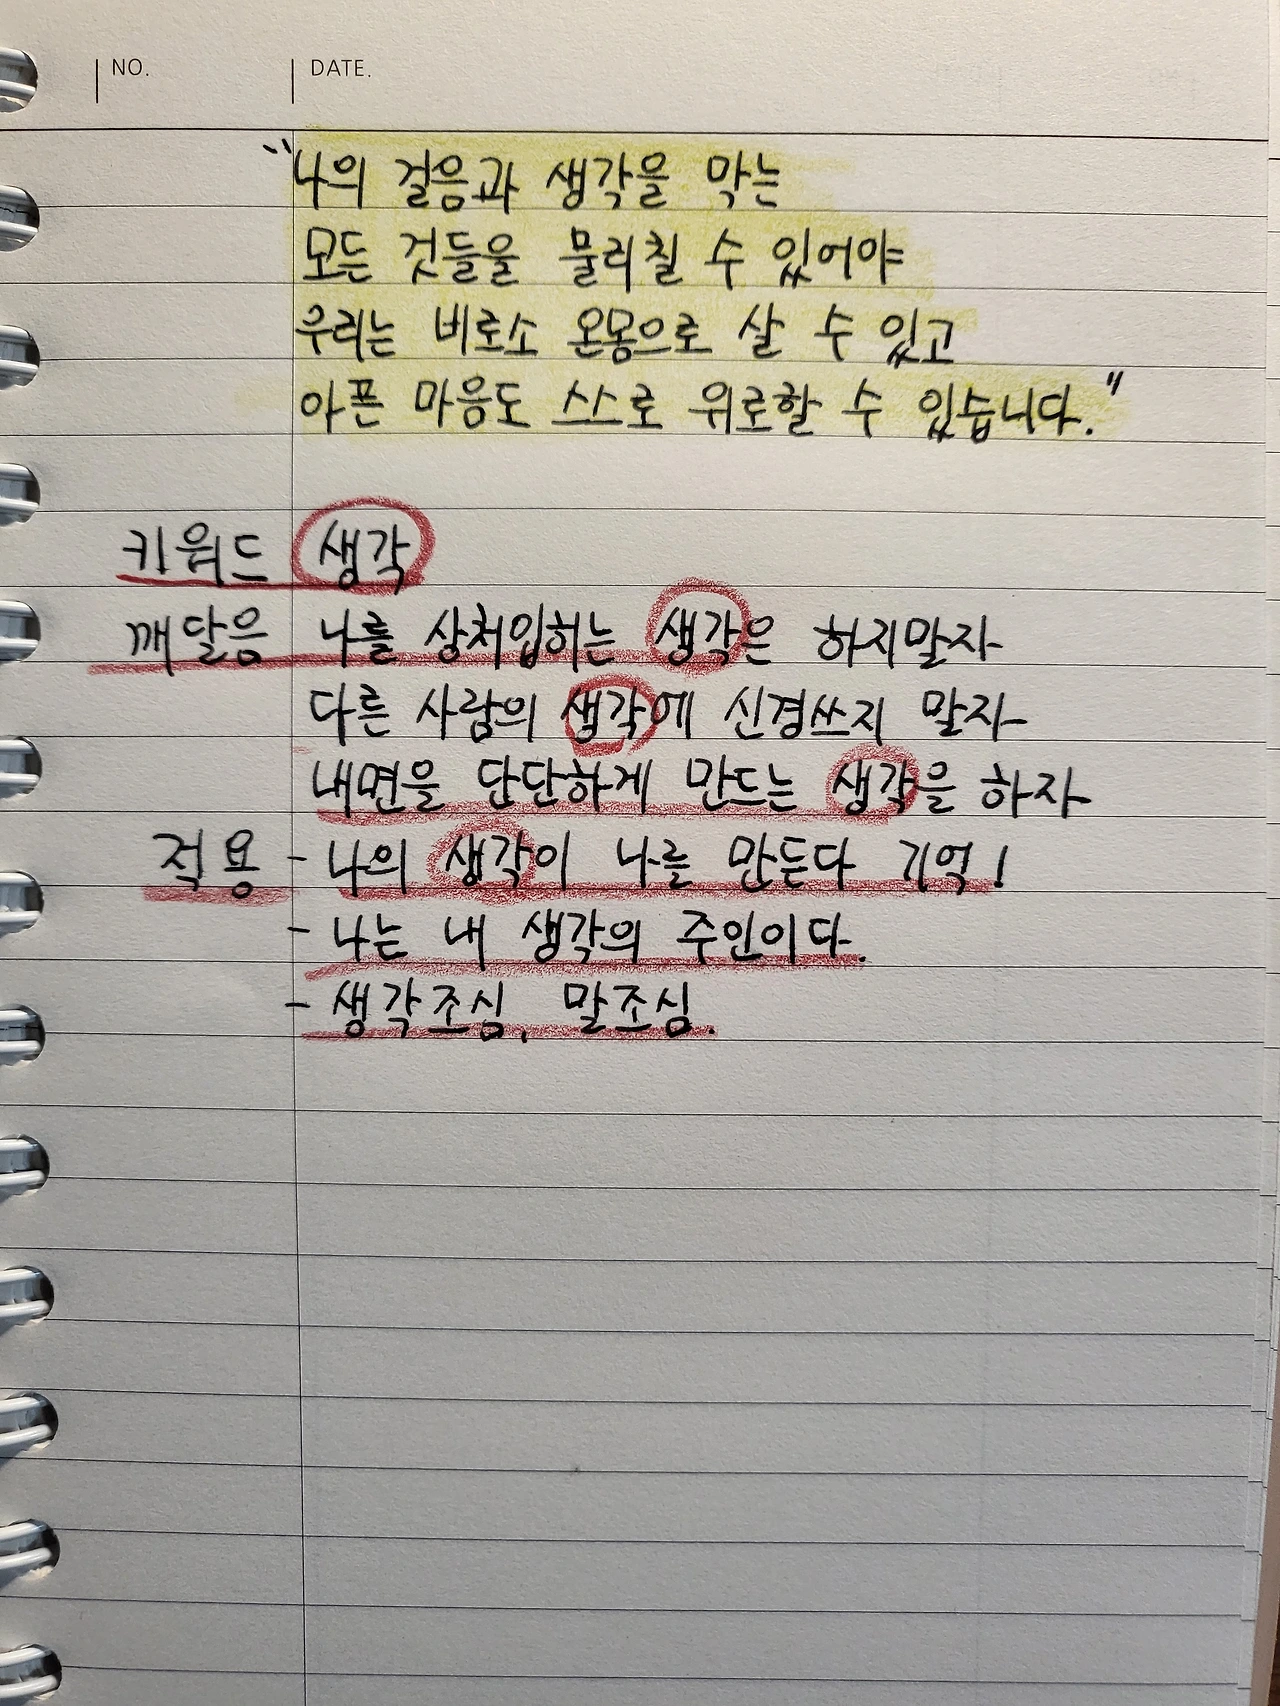 NO. DATE.
"나의 걸음과 생각을 막는
모든 것들을 물리칠 수 있어야
우리는 비로소 온몸으로 살 수 있고
아픈 마음도 스스로 위로할 수 있습니다."
키워드 생각
깨달음 나를 상처입히는 생각은 하지말자
다른 사람의 생각에 신경쓰지 말자
내면을 단단하게 만드는 생각을 하자
적용 - 나의 생각이 나를 만든다 기억!
- 나는 내 생각의 주인이다.
- 생각조심, 말조심.